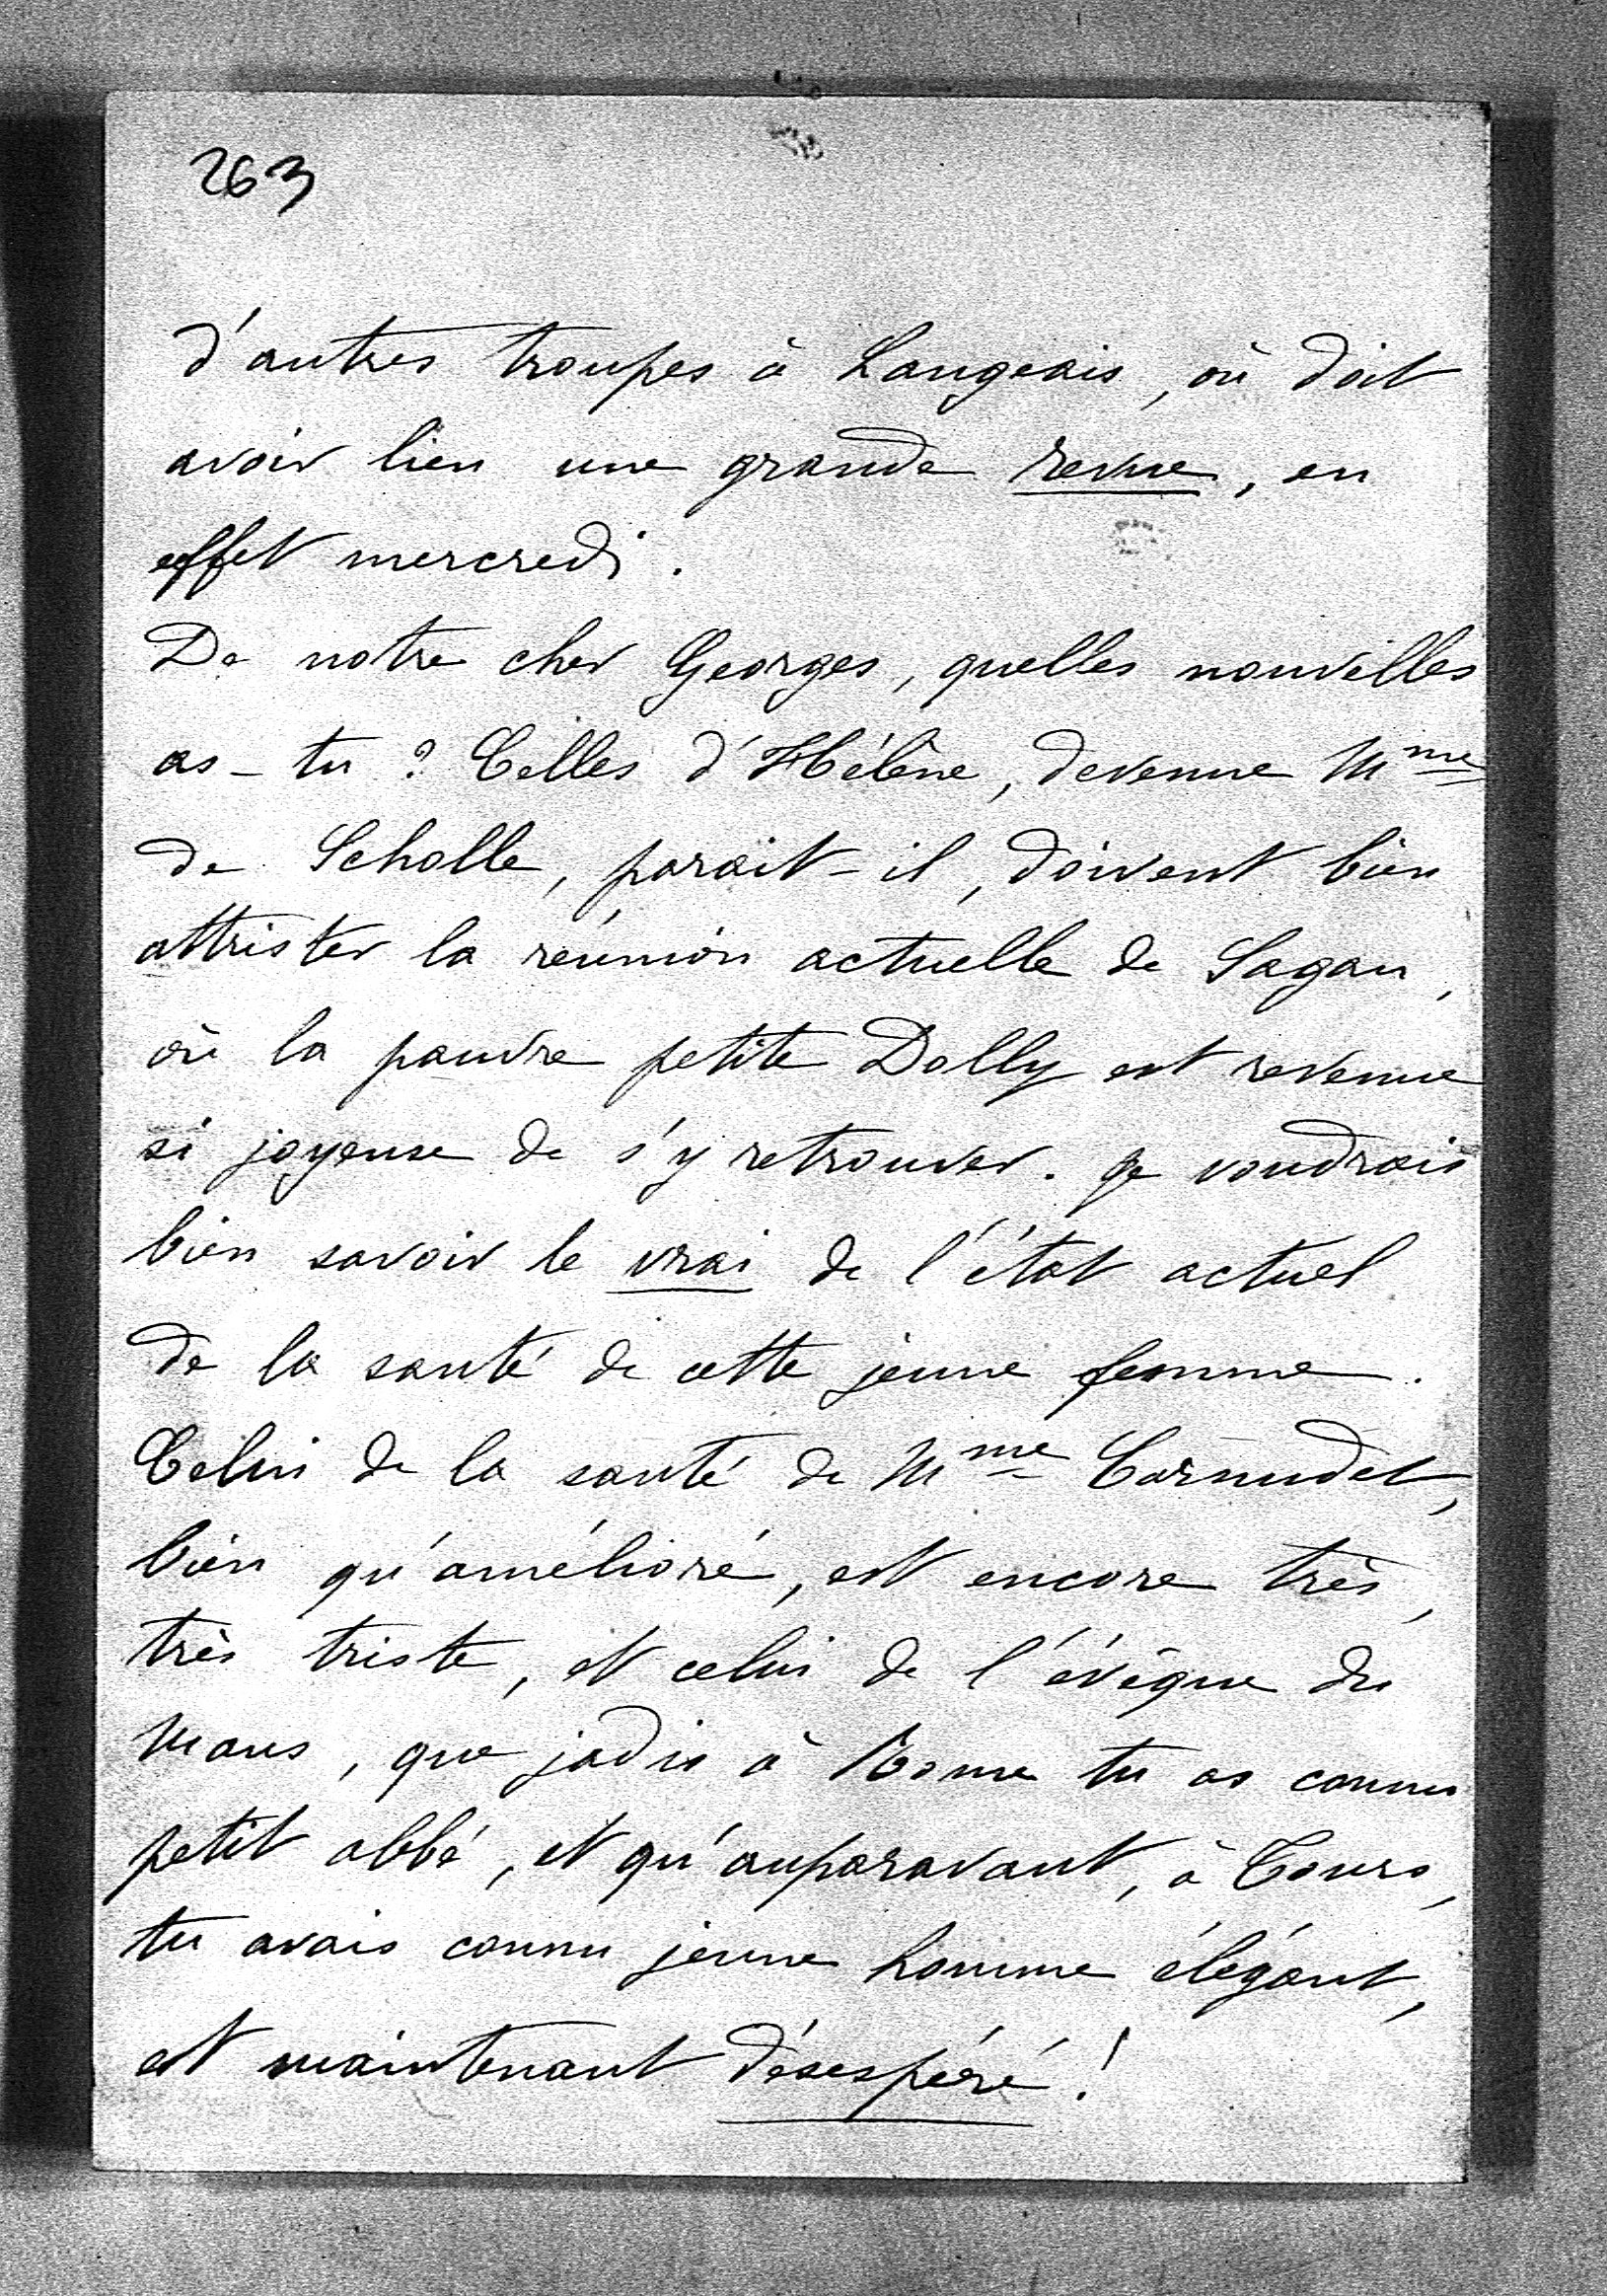 263
d'autres troupes à Langeais, où doit
avoir lieu une grande revue, en
effet mercredi.
De notre cher Georges, quelles nouvelles
as-tu ? Celles d'Hélène, devenue Mme
de Scholle, parait-il, doivent bien
attrister la réunion actuelle de Sagan,
où la pauvre petite Dolly est revenue
si joyeuse de s'y retrouver. Je voudrais
bien savoir le vrai de l'état actuel
de la santé de cette jeune femme.
Celui de la santé de Mme Cornudet,
bien qu'amélioré, est encore très,
très triste, et celui de l'évêque du
Mans, que jadis à Rome tu as connu
petit abbé, et qu'auparavant, à Tours,
tu avais connu jeune homme élégant,
est maintenant désespéré !